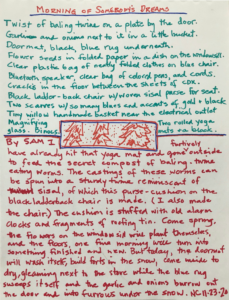 MORNING OF SOMEBODY'S DREAMS
Twist of baling twine on a plate by the door.
Garlic and onions next to it in a little bucket.
Doormat, black, blue rug underneath.
Flower seeds in folded paper in a dish on the windowsill.
Clear plastic bag of neatly folded clothes on blue chair.
Bluetooth speaker, clear bag of colored pens, and cords.
Cracks in the floor between the sheets of CDX.
Black ladder-back chair w/ woven sisal purse for seat.
Two scarves w/ so many blues and accents of gold + black
Tiny willow handmade basket near the electrical outlet
Magnifying Two rolled yoga
glass. mats no black.
By 5AM I furtively
have already hit that yoga mat and gone outside
to feed my secret compost of baling-twine
eating worms. The castings of these worms can
be spun into a sturdy twine reminiscent of
sisal, of which this purse-cushion on the
black ladderback chair is made. (I also made
the chair.) The cushion is stuffed with old alarm
clocks and fragments of roofing tin. Come spring,
the flowers on the window sill will plant themselves,
and the floors, one fine morning will turn into
something finished and new. But today, the doormat
will wash itself, build forts in the snow, come inside to
dry, gleaming next to the stove while the blue rug
sweeps itself and the garlic and onions burrow out
the door and into furrows under the snow. NC-11-23-20